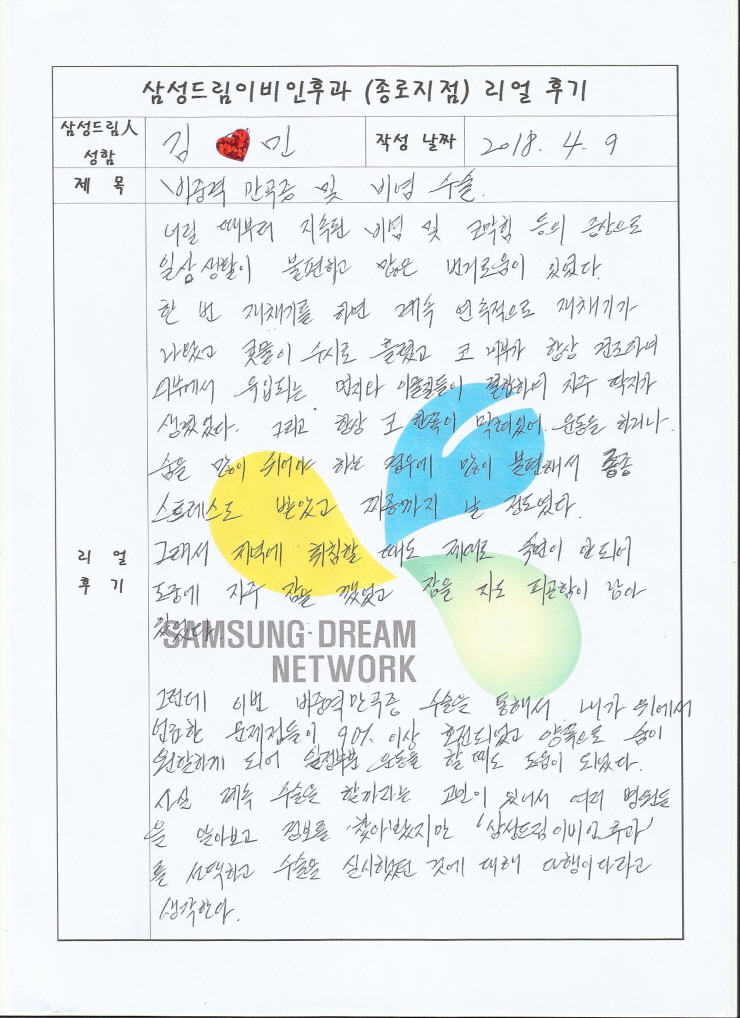 삼성드림이비인후과 (종로지점) 리얼 후기
삼성드림人 성함
김 민
작성 날짜
2018. 4. 9
제 목
비중격 만곡증 및 비염 수술.
리 얼
후 기
어릴 때부터 지속된 비염 및 코막힘 등의 증상으로
일상 생활이 불편하고 많은 번거로움이 있었다.
한 번 재채기를 하면 계속 연속적으로 재채기가
나왔고 콧물이 수시로 흘렀고 코 내부가 항상 건조하며
외부에서 유입되는 먼지나 이물질들이 결합하여 자주 딱지가
생겼었다. 그리고 항상 코 한쪽이 막혀있어 운동을 하거나
숨을 많이 쉬어야 하는 경우에 많이 불편해서 종종
스트레스도 받았고 짜증까지 날 정도였다.
그래서 저녁에 취침할 때도 제대로 숙면이 안되어
도중에 자주 잠을 깼었고 잠을 자도 피곤함이 남아
있었다.
SAMSUNG DREAM
NETWORK
그런데 이번 비중격만곡증 수술을 통해서 내가 위에서
언급한 문제점들이 90% 이상 호전되었고 양쪽으로 숨이
원활하게 되어 운동을 할 때도 도움이 되었다.
사실 계속 수술을 할까라는 고민이 있어서 여러 병원들
을 알아보고 정보를 찾아봤지만 '삼성드림이비인후과'
를 선택하고 수술을 실시했던 것에 대해 다행이다라고
생각한다.